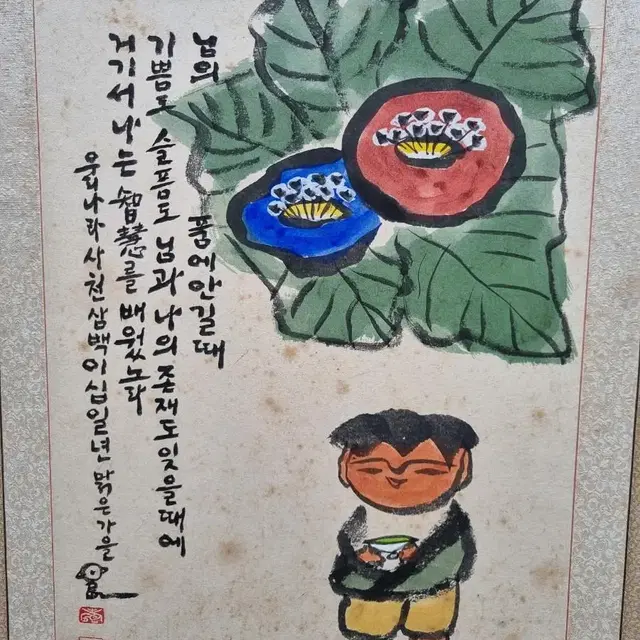 님의 품에안길때
기쁨도 슬픔도 님과 나의 존재도잊을때에
거기서 나는 智慧를 배웠노라
우리나라사천삼백이십일년 맑은가을